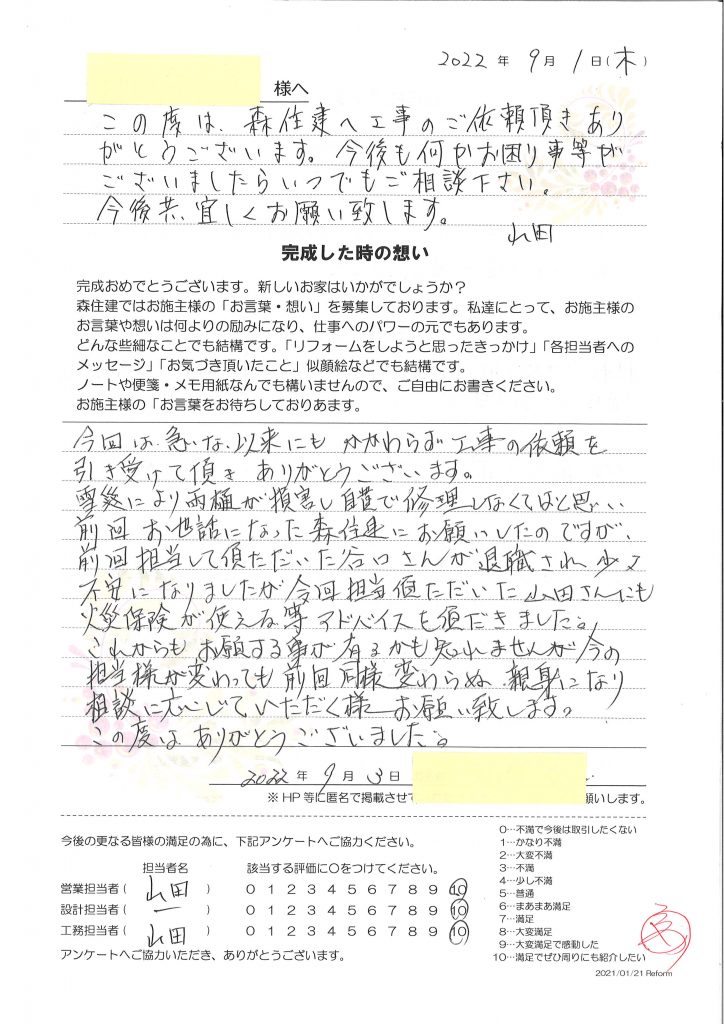 2022 年 9 月 1 日(木)
様へ
この度は、森住建へ工事のご依頼頂きあり
がとうございます。今後も何かお困り事等が
ございましたらいつでもご相談下さい。
今後共、宜しくお願い致します。
山田
完成した時の想い
完成おめでとうございます。新しいお家はいかがでしょうか？
森住建ではお施主様の「お言葉・想い」を募集しております。私達にとって、お施主様の
お言葉や想いは何よりの励みになり、仕事へのパワーの元でもあります。
どんな些細なことでも結構です。「リフォームをしようと思ったきっかけ」「各担当者への
メッセージ」「お気づき頂いたこと」似顔絵などでも結構です。
ノートや便箋・メモ用紙なんでも構いませんので、ご自由にお書きください。
お施主様の「お言葉をお待ちしておりあます。
今回は、急な、以来にも かかわらず 工事の依頼を
引き受けて頂き ありがとうございます。
雪災により雨樋が損害し自費で修理しなくてはと思い
前回 お世話になった森住建にお願いしたのですが、
前回担当して頂ただいた谷口さんが退職され、少々
不安になりましたが今回担当頂ただいた山田さんにも
火災保険が使える等アドバイスも頂だきました。
これからもお願する事が有るかも知れませんが今の
担当様が変わっても前回同様変わらぬ、親身になり
相談に応じていただく様 お願い致します。
この度は ありがとうございました。
2022 年 9 月 3 日
※HP等に匿名で掲載させて
願いします。
今後の更なる皆様の満足の為に、下記アンケートへご協力ください。
担当者名 該当する評価に○をつけてください。
営業担当者( 山田 ) 0 1 2 3 4 5 6 7 8 9 10
設計担当者( ー ) 0 1 2 3 4 5 6 7 8 9 10
工務担当者( 山田 ) 0 1 2 3 4 5 6 7 8 9 10
アンケートへご協力いただき、ありがとうございます。
0…不満で今後は取引したくない
1…かなり不満
2…大変不満
3…不満
4…少し不満
5…普通
6…まあまあ満足
7…満足
8…大変満足
9…大変満足で感動した
10…満足でぜひ周りにも紹介したい
2021/01/21 Reform